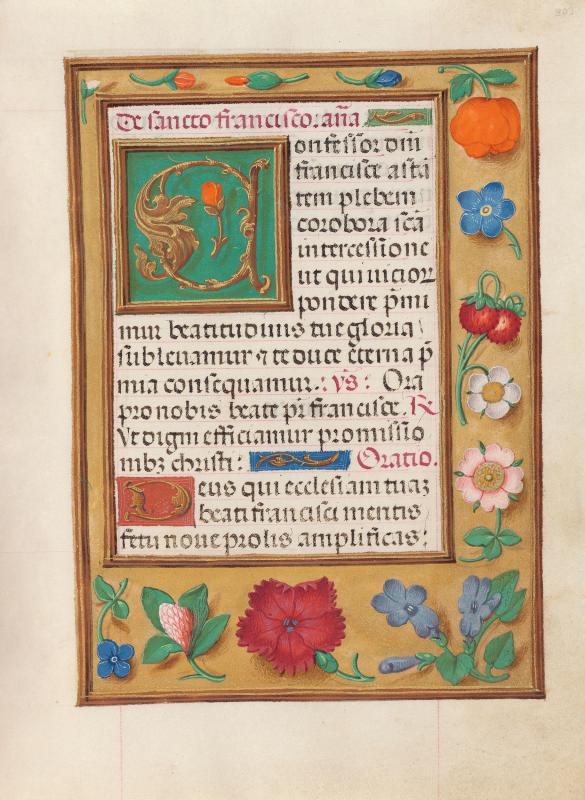 De sancto francisco. an̄a
Confessor dn̄i
francisce astā
tem plebem
corobora sc̄a
intercessione
ut qui viciorꝝ
pondere p̄mi
mur beatitudinis tue gloria
sublevamur ⁊ te duce eterna p̄
mia consequamur. : vs̄ : Ora
pro nobis beate pr̄ francisce. ℞
Vt digni efficiamur promissio
nibꝫ christi : Oratio.
Deus qui ecclesiam tuaꝫ
beati francisci meritis
fetu noue prolis amplificas :